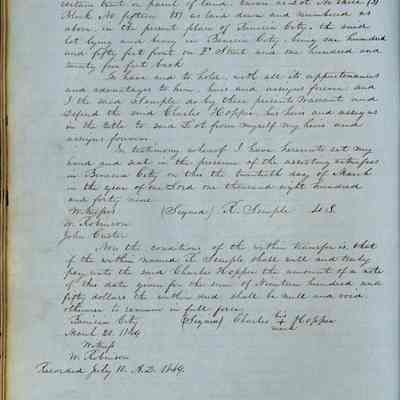 certain tract or parcel of land, known as Lot No three (3)
Block No fifteen (15) as laid down and numbered as
above, in the present place of Benicia City, the said
lot lying and being in Benicia City, being one hundred
and fifty feet front on F Street and one hundred and
twenty five feet back
To have and to hold, with all its appurtenances
and advantages to him, heirs and assigns forever and
I the said Semple do by these presents Warrant and
Defend the said Charles Hopper his heirs and assigns
in the title to said Lot from myself my heirs and
assigns forever.
In testimony whereof I have hereunto set my
hand and seal in the presence of the attesting witnesses
in Benicia City on this the twentieth day of March
in the year of our Lord one thousand eight hundred
and forty nine
Witness (Signed) R. Semple L.S.
W. Robinson
John Custer
Now the condition of the within transfer is that
if the within named R. Semple shall well and truly
pay unto the said Charles Hopper the amount of a note
of this date given for the sum of Nineteen hundred and
fifty dollars the within deed shall be null and void
otherwise to remain in full force.
Benicia City (Signed) Charles his + mark Hopper
March 20. 1849
Witness
W. Robinson
Recorded July 10. A.D. 1849.